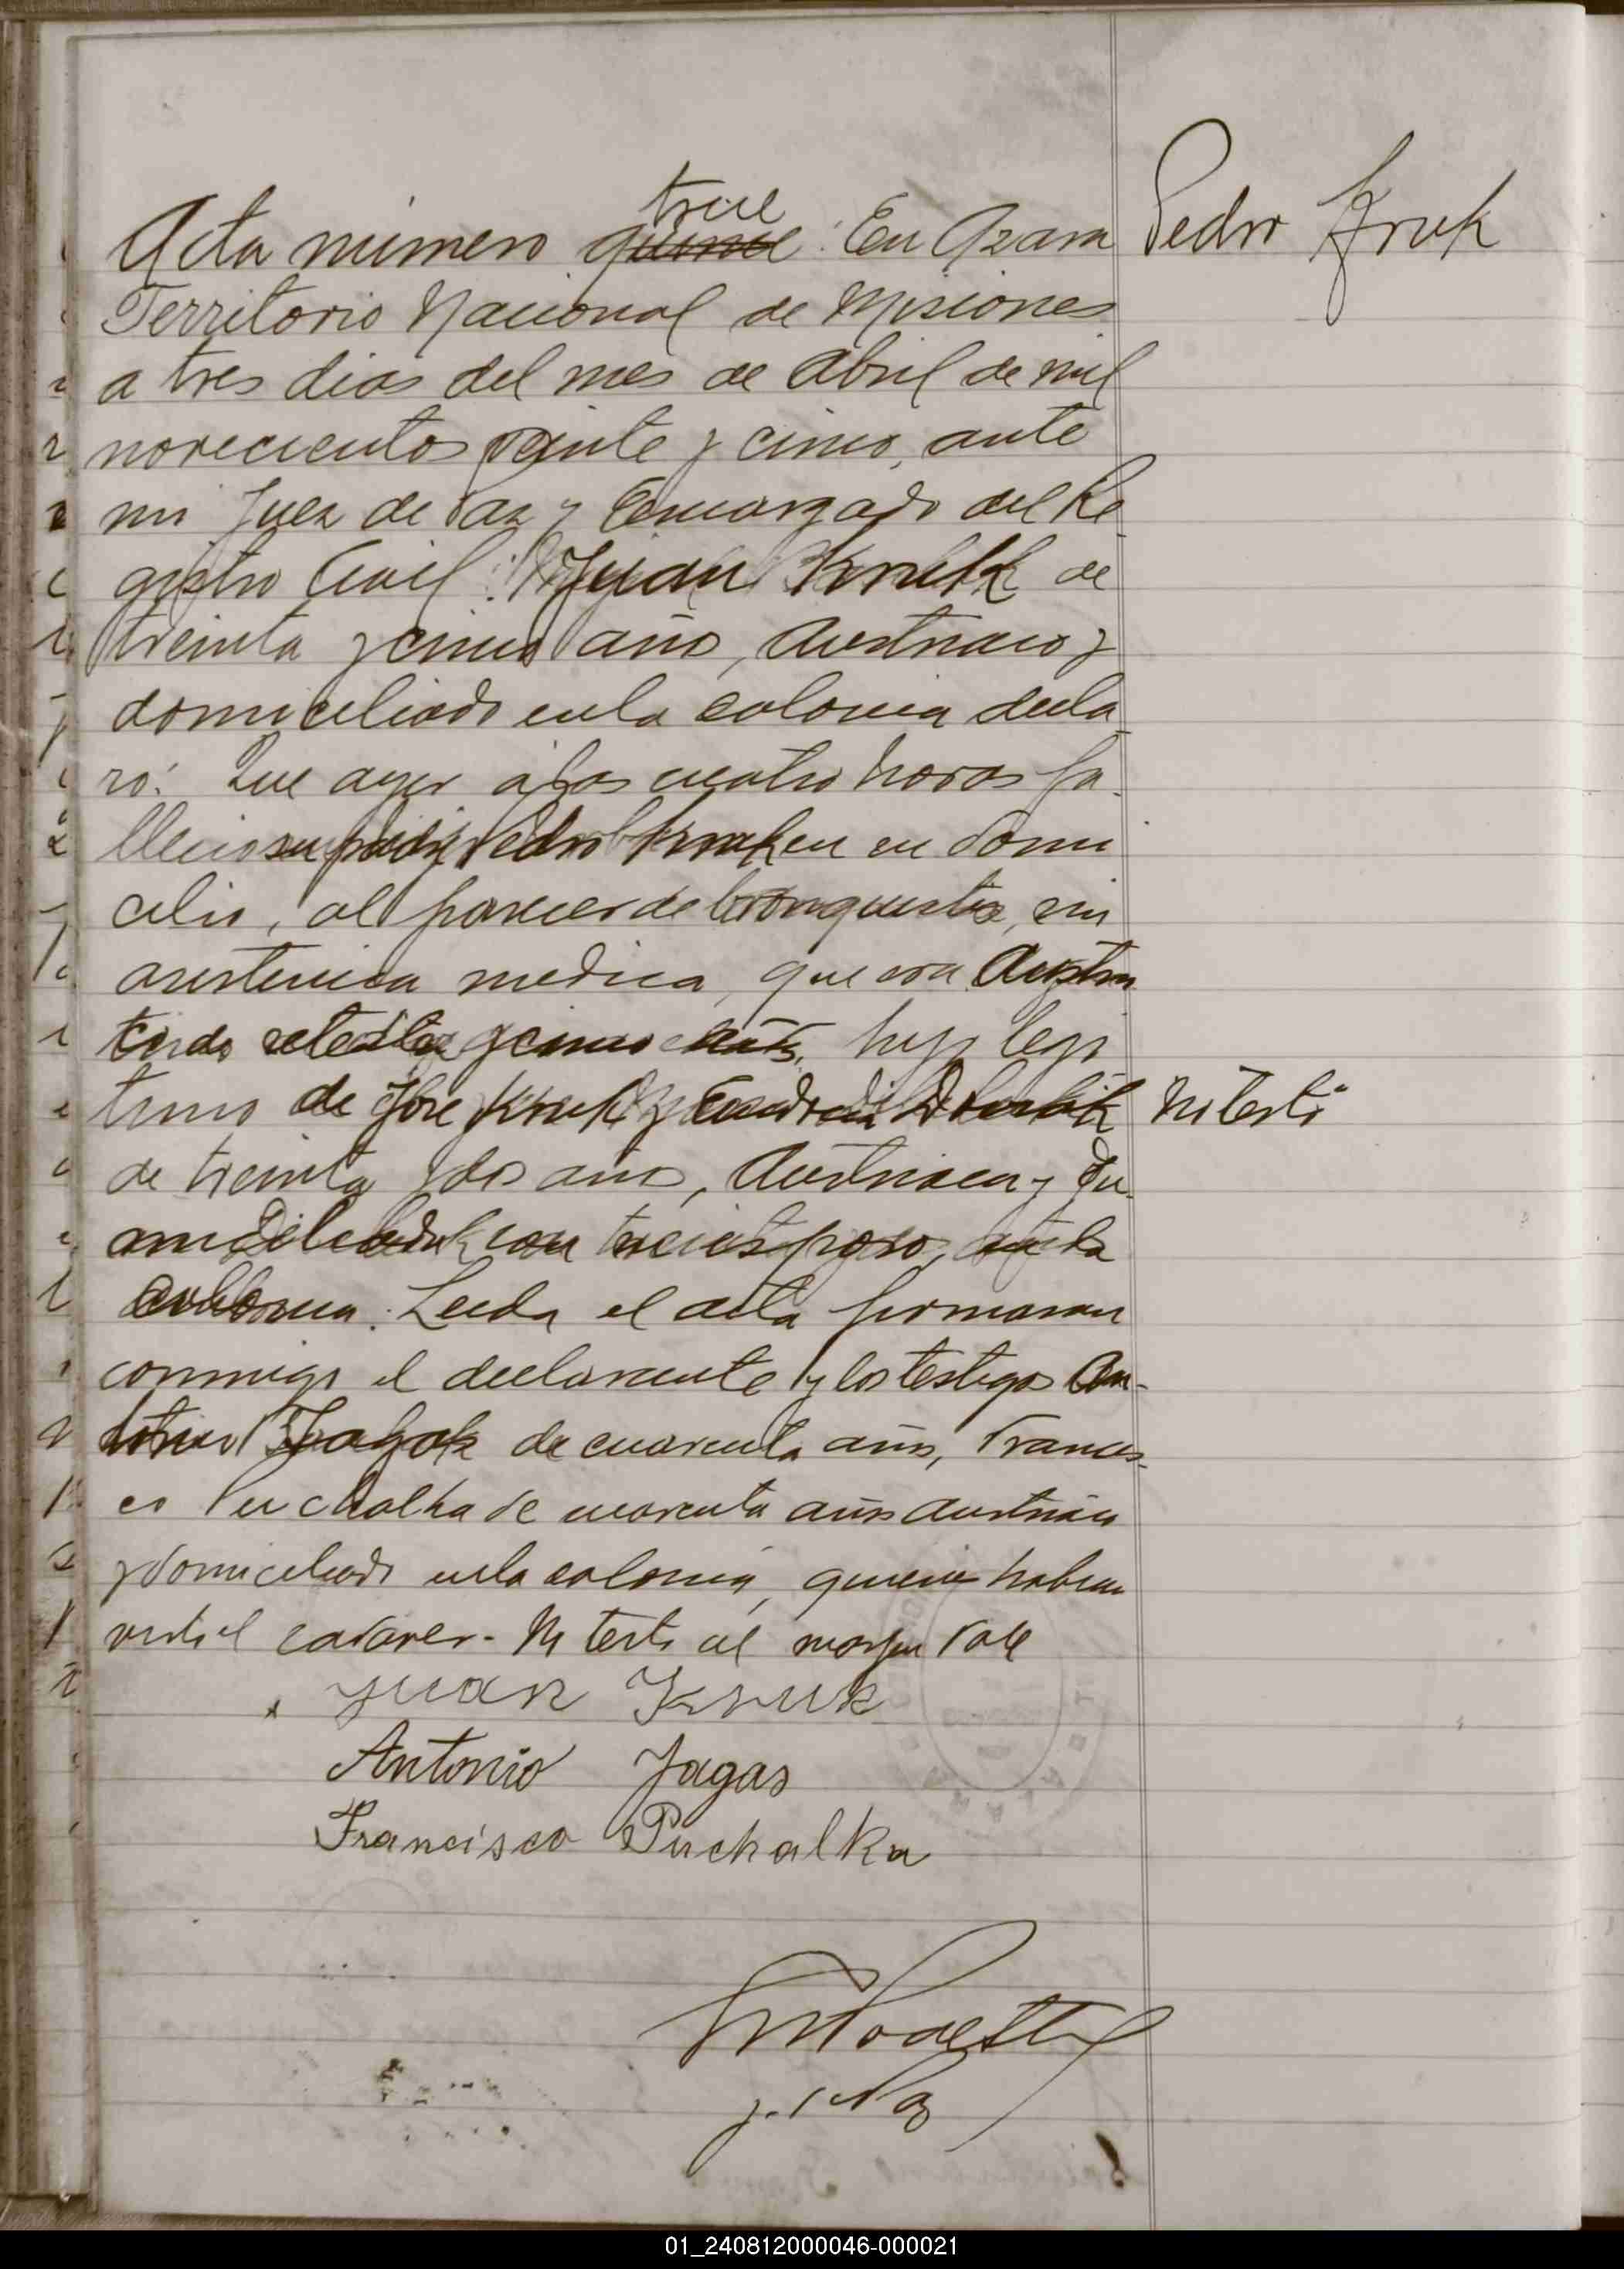 trece
Acta número quince : En Azara
Pedro Kruk
Territorio Nacional de Misiones
a tres dias del mes de Abril de mil
novecientos veinte y cinco, ante
mi Juez de Paz y Encargado del Re
gistro Civil: Juan Kruk de
treinta y cinco años, Austriaco y
domiciliado en la colonia decla
ró: Que ayer a las cuatro horas fa
lleció su padre Pedro Kruk en su domi
cilio, al parecer de bronquitis, sin
asistencia medica, que era Austria
y cinco años, hijo legi
timo de José Kruk y
No testó
de treinta y dos años, Austriaca y
esposo, en la
colonia. Leida el acta firmaron
conmigo el declarante y los testigos An-
tonio de cuarenta años, Francis-
co Puchalka de cuarenta años Austriaco
y domiciliado en la colonia, quienes habian
visto el cadaver - No testó al margen vale
Juan Kruk
Antonio Jagas
Francisco Puchalka
J. de Paz
01_240812000046-000021